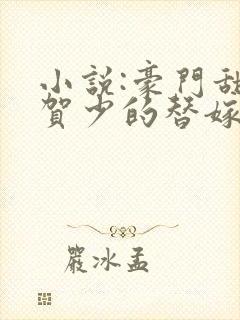 小說:豪門甜
賀少的替嫁
嚴冰孟